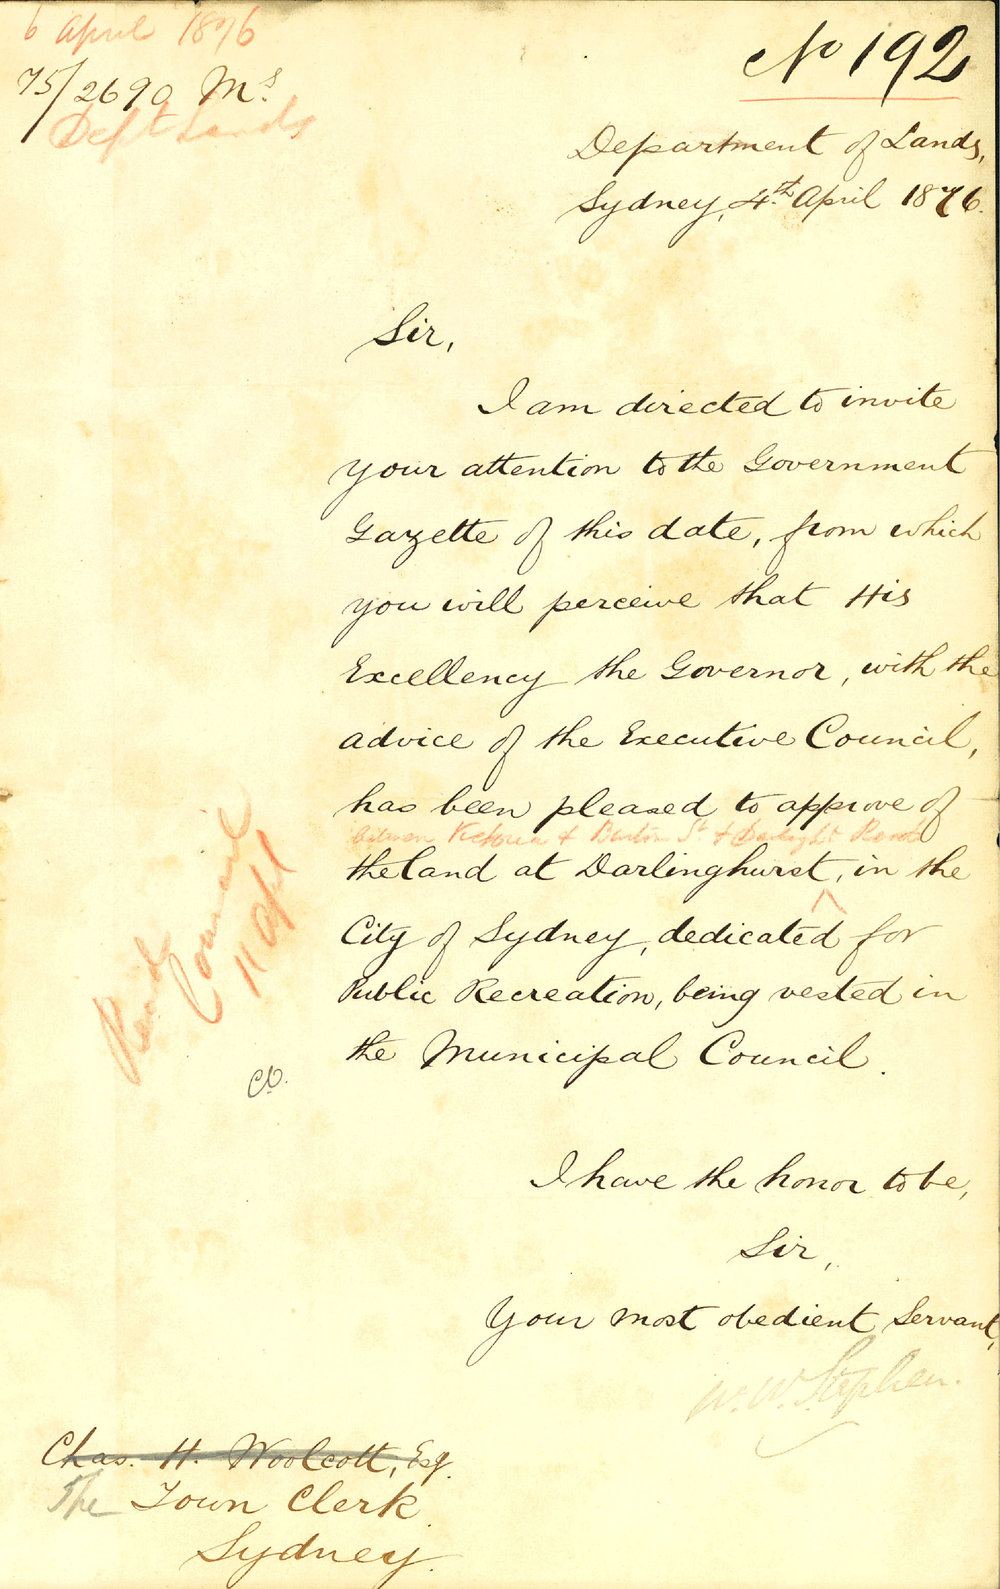 6 April 1876
No 192
75/2690 Ms.
Dept Lands
Department of Lands,
Sydney, 4th April 1876.
Sir,
I am directed to invite
your attention to the Government
Gazette of this date, from which
you will perceive that His
Excellency the Governor, with the
advice of the Executive Council,
has been pleased to approve of
between Victoria & Burton St & Darlinght Road
the land at Darlinghurst, in the
City of Sydney, dedicated for
Public Recreation, being vested in
the Municipal Council.
Read
Council
11 Apl
I have the honor to be,
Sir,
Your most obedient Servant,
W. W. Stephen.
Chas. H. Woolcott, Esq.
The Town Clerk
Sydney.